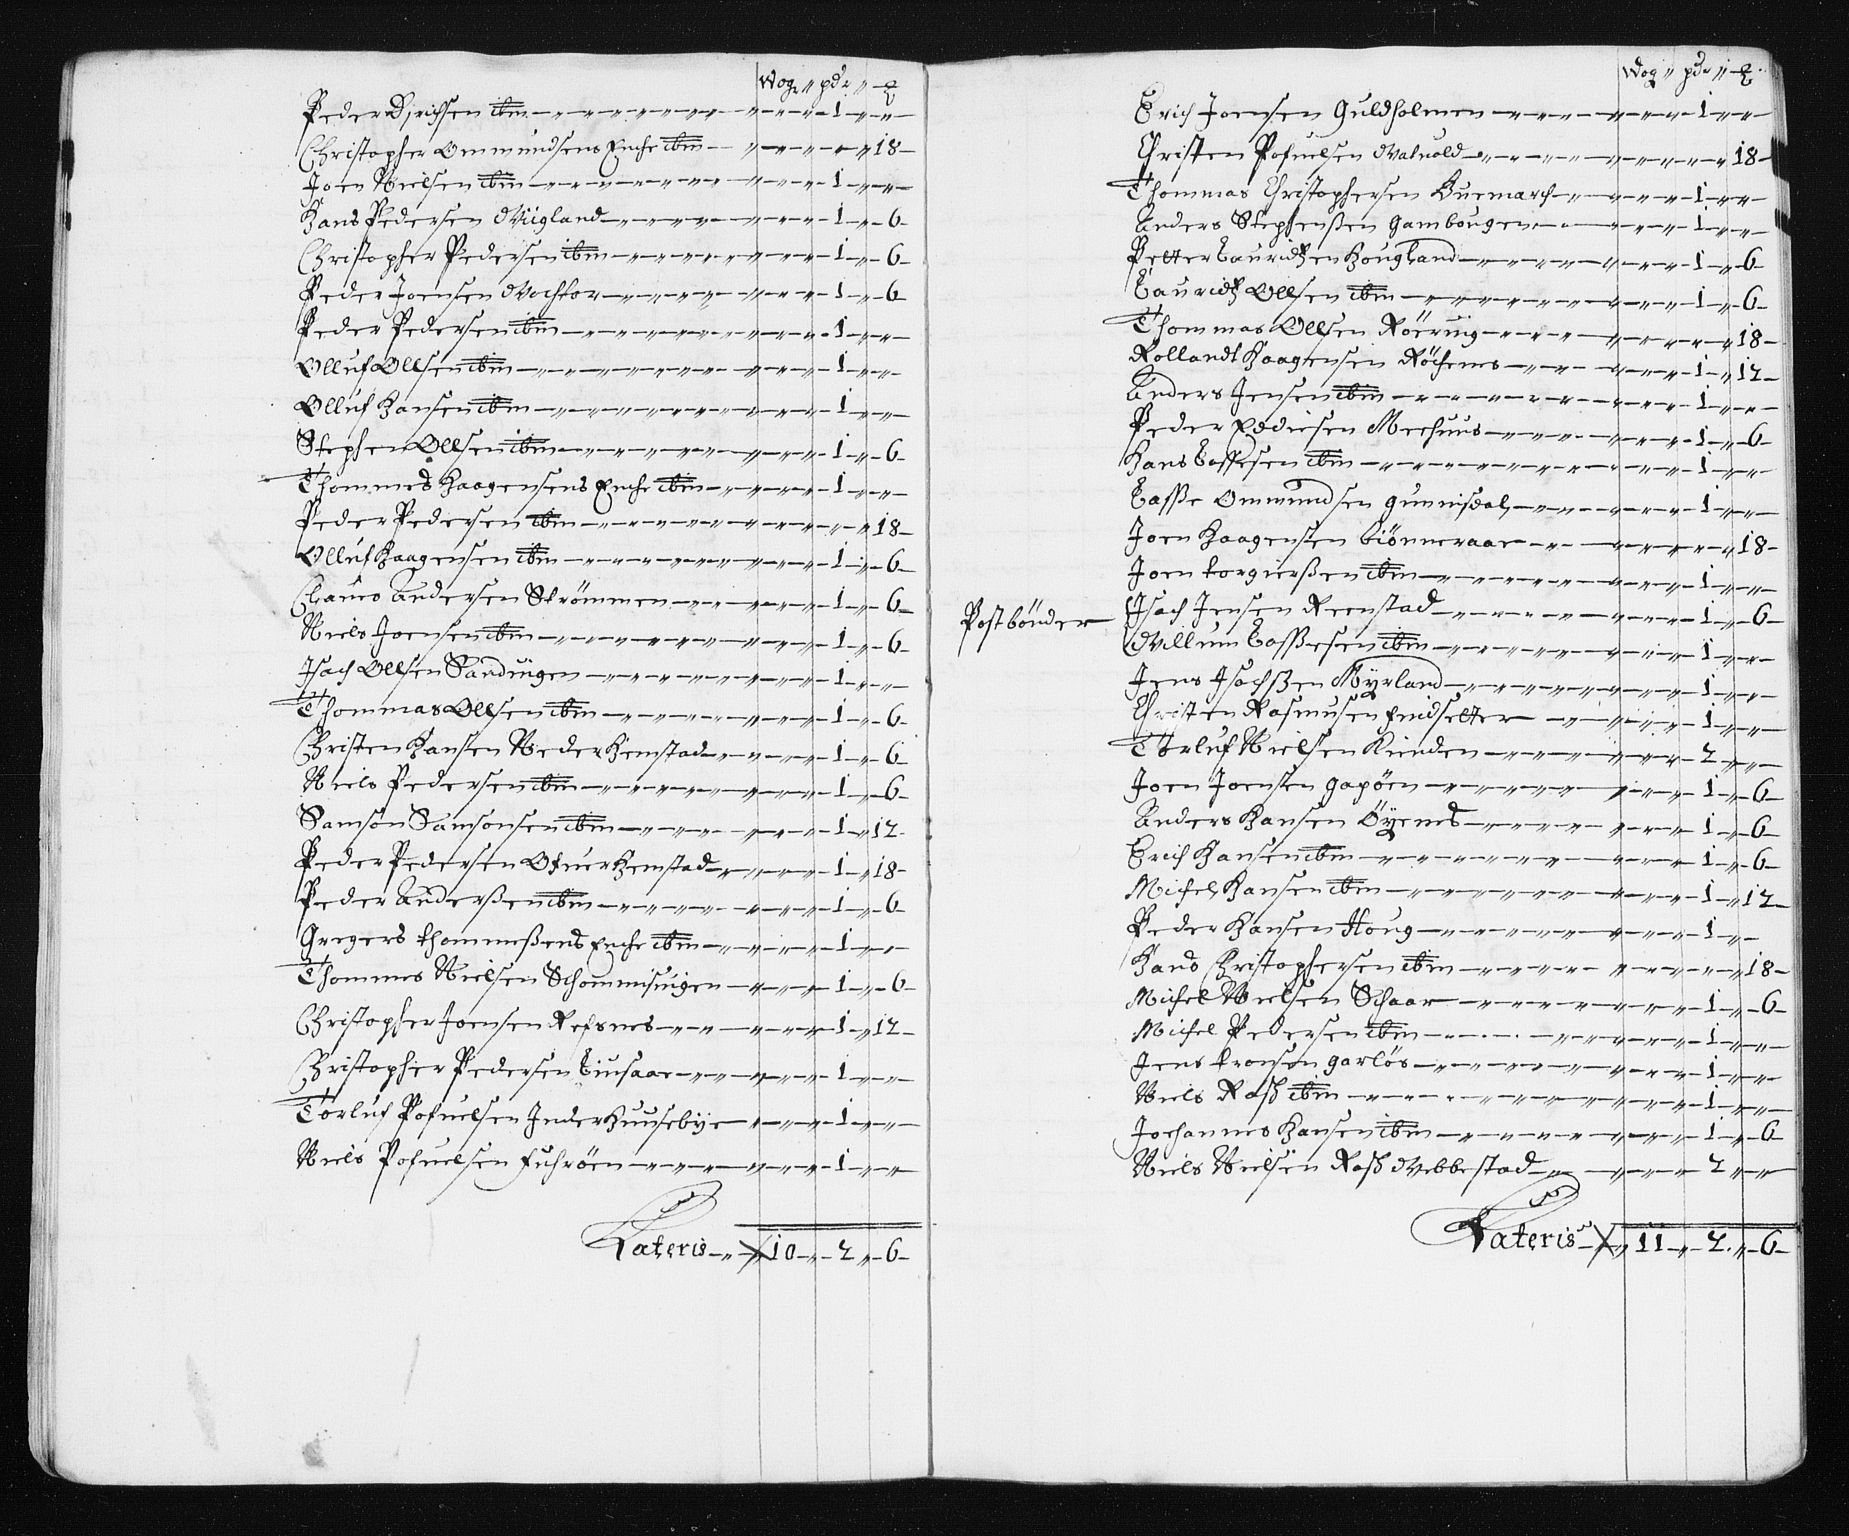 Wog „ pdr „ ℔
Peder Dirichsen ibm 1
Christopher Ommundsens Enche ibm 18
Joen Nielsen ibm 1
Hans Pedersen Wiigland 1 6
Christopher Pedersen ibm 1 6
Peder Joensen 1 6
Peder Pedersen ibm 1
Olluf Ollsen ibm 1
Olluf Hansen ibm 1
Stephen Ollsen ibm 1 6
Thommes Haagensens Enche ibm 1
Peder Pedersen ibm 18
Olluf Haagensen ibm 1 6
Clauus Andersen Strömmen 1 6
Niels Joensen ibm 1 6
Isach Ollsen Sanduigen 1
Thommas Ollsen ibm 1 6
Christen Hansen Neder Hemstad 1 6
Niels Pedersen ibm 1 6
Samson Samsonsen ibm 1 12
Peder Pedersen Ofuer Hemstad 1 18
Peder Anderßen ibm 1 6
Gregers thommeßens Enche ibm 1
Thommes Nielsen Schommisuigen 1 6
Christopher Joensen Refsnes 1 12
Christopher Pedersen Tiusaae 1
Torluf Pofuelsen Inder Huusebye 1
Niels Pofuelsen Fuhröen 1
Lateris 10 2 6
Wog „ pdr „ ℔
Erich Joensen Guldholmen 1
Christen Pofuelsen Waluold 18
Thommas Christophersen Buemarch 1
Anders Stephenßen Gambougen 1
Petter Lauridzen Hougland 1 6
Lauridz Ollsen ibm 1 6
Thommas Ollsen Röeruig 18
Rollandt Haagensen Röchenes 1 12
Anders Jensen ibm 1
Peder Eddiesen Meehuus 1 6
Hans Tossesen ibm 1
Taße Ommundsen Gunnisdal 1
Joen Haagensen biönneraae 18
Joen torgierßen ibm 1
Postbönder
Isach Jensen Reenstad 1 6
Willum Toßesen ibm 1
Jens Isachßen Myrland 1
Christen Rasmusen Endsetter 1
Torluf Nielsen Kinden 2
Joen Joensen Gapöen 1 6
Anders Hansen Öyenes 1 6
Erich Hansen ibm 1 6
Michel Hansen ibm 1 12
Peder Hansen Houg 1
Hans Christophersen ibm 18
Michel Nielsen Schaar 1 6
Michel Pedersen ibm 1
Jens tronsön Garlös 1
Niels Rasch ibm 1
Johannes Hansen ibm 1 6
Niels Nielsen Rasch Webbestad 2
Lateris 11 2 6